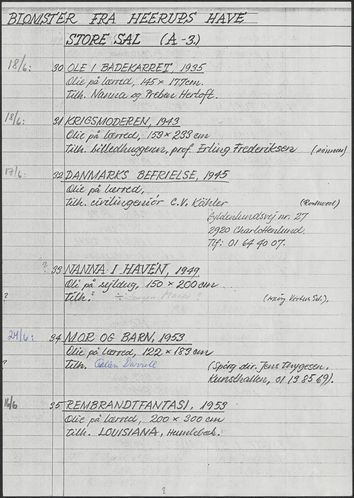 BLOMSTER FRA HEERUPS HAVE
STORE SAL (A-3.)
18/6: 30 OLE I BADEKARRET, 1935
Olie på lærred, 145 × 177cm.
Tilh. Nanna og Preben Hertoft.
18/6: 31 KRIGSMODEREN, 1943
Olie på lærred, 153 × 233 cm
Tilh. billedhuggeren, prof. Erling Frederiksen
17/6: 32 DANMARKS BEFRIELSE, 1945
Olie på lærred,
Tilh. civilingeniør C.V. Kähler
Gyldenlundsvej nr. 27
2920 Charlottenlund.
Tlf: 01 64 40 07.
? 33 NANNA I HAVEN, 1949
Olie på sejldug, 150 × 200 cm
? Tilh. ÷
24/6: 34 MOR OG BARN, 1953
Olie på lærred, 122 × 183 cm
? Tilh. (Spørg dir. Jens Thygesen,
Kunsthallen, 01 13 85 69).
16/6 35 REMBRANDTFANTASI, 1953
Olie på lærred, 200 × 300 cm
Tilh. LOUISIANA, Humlebæk.